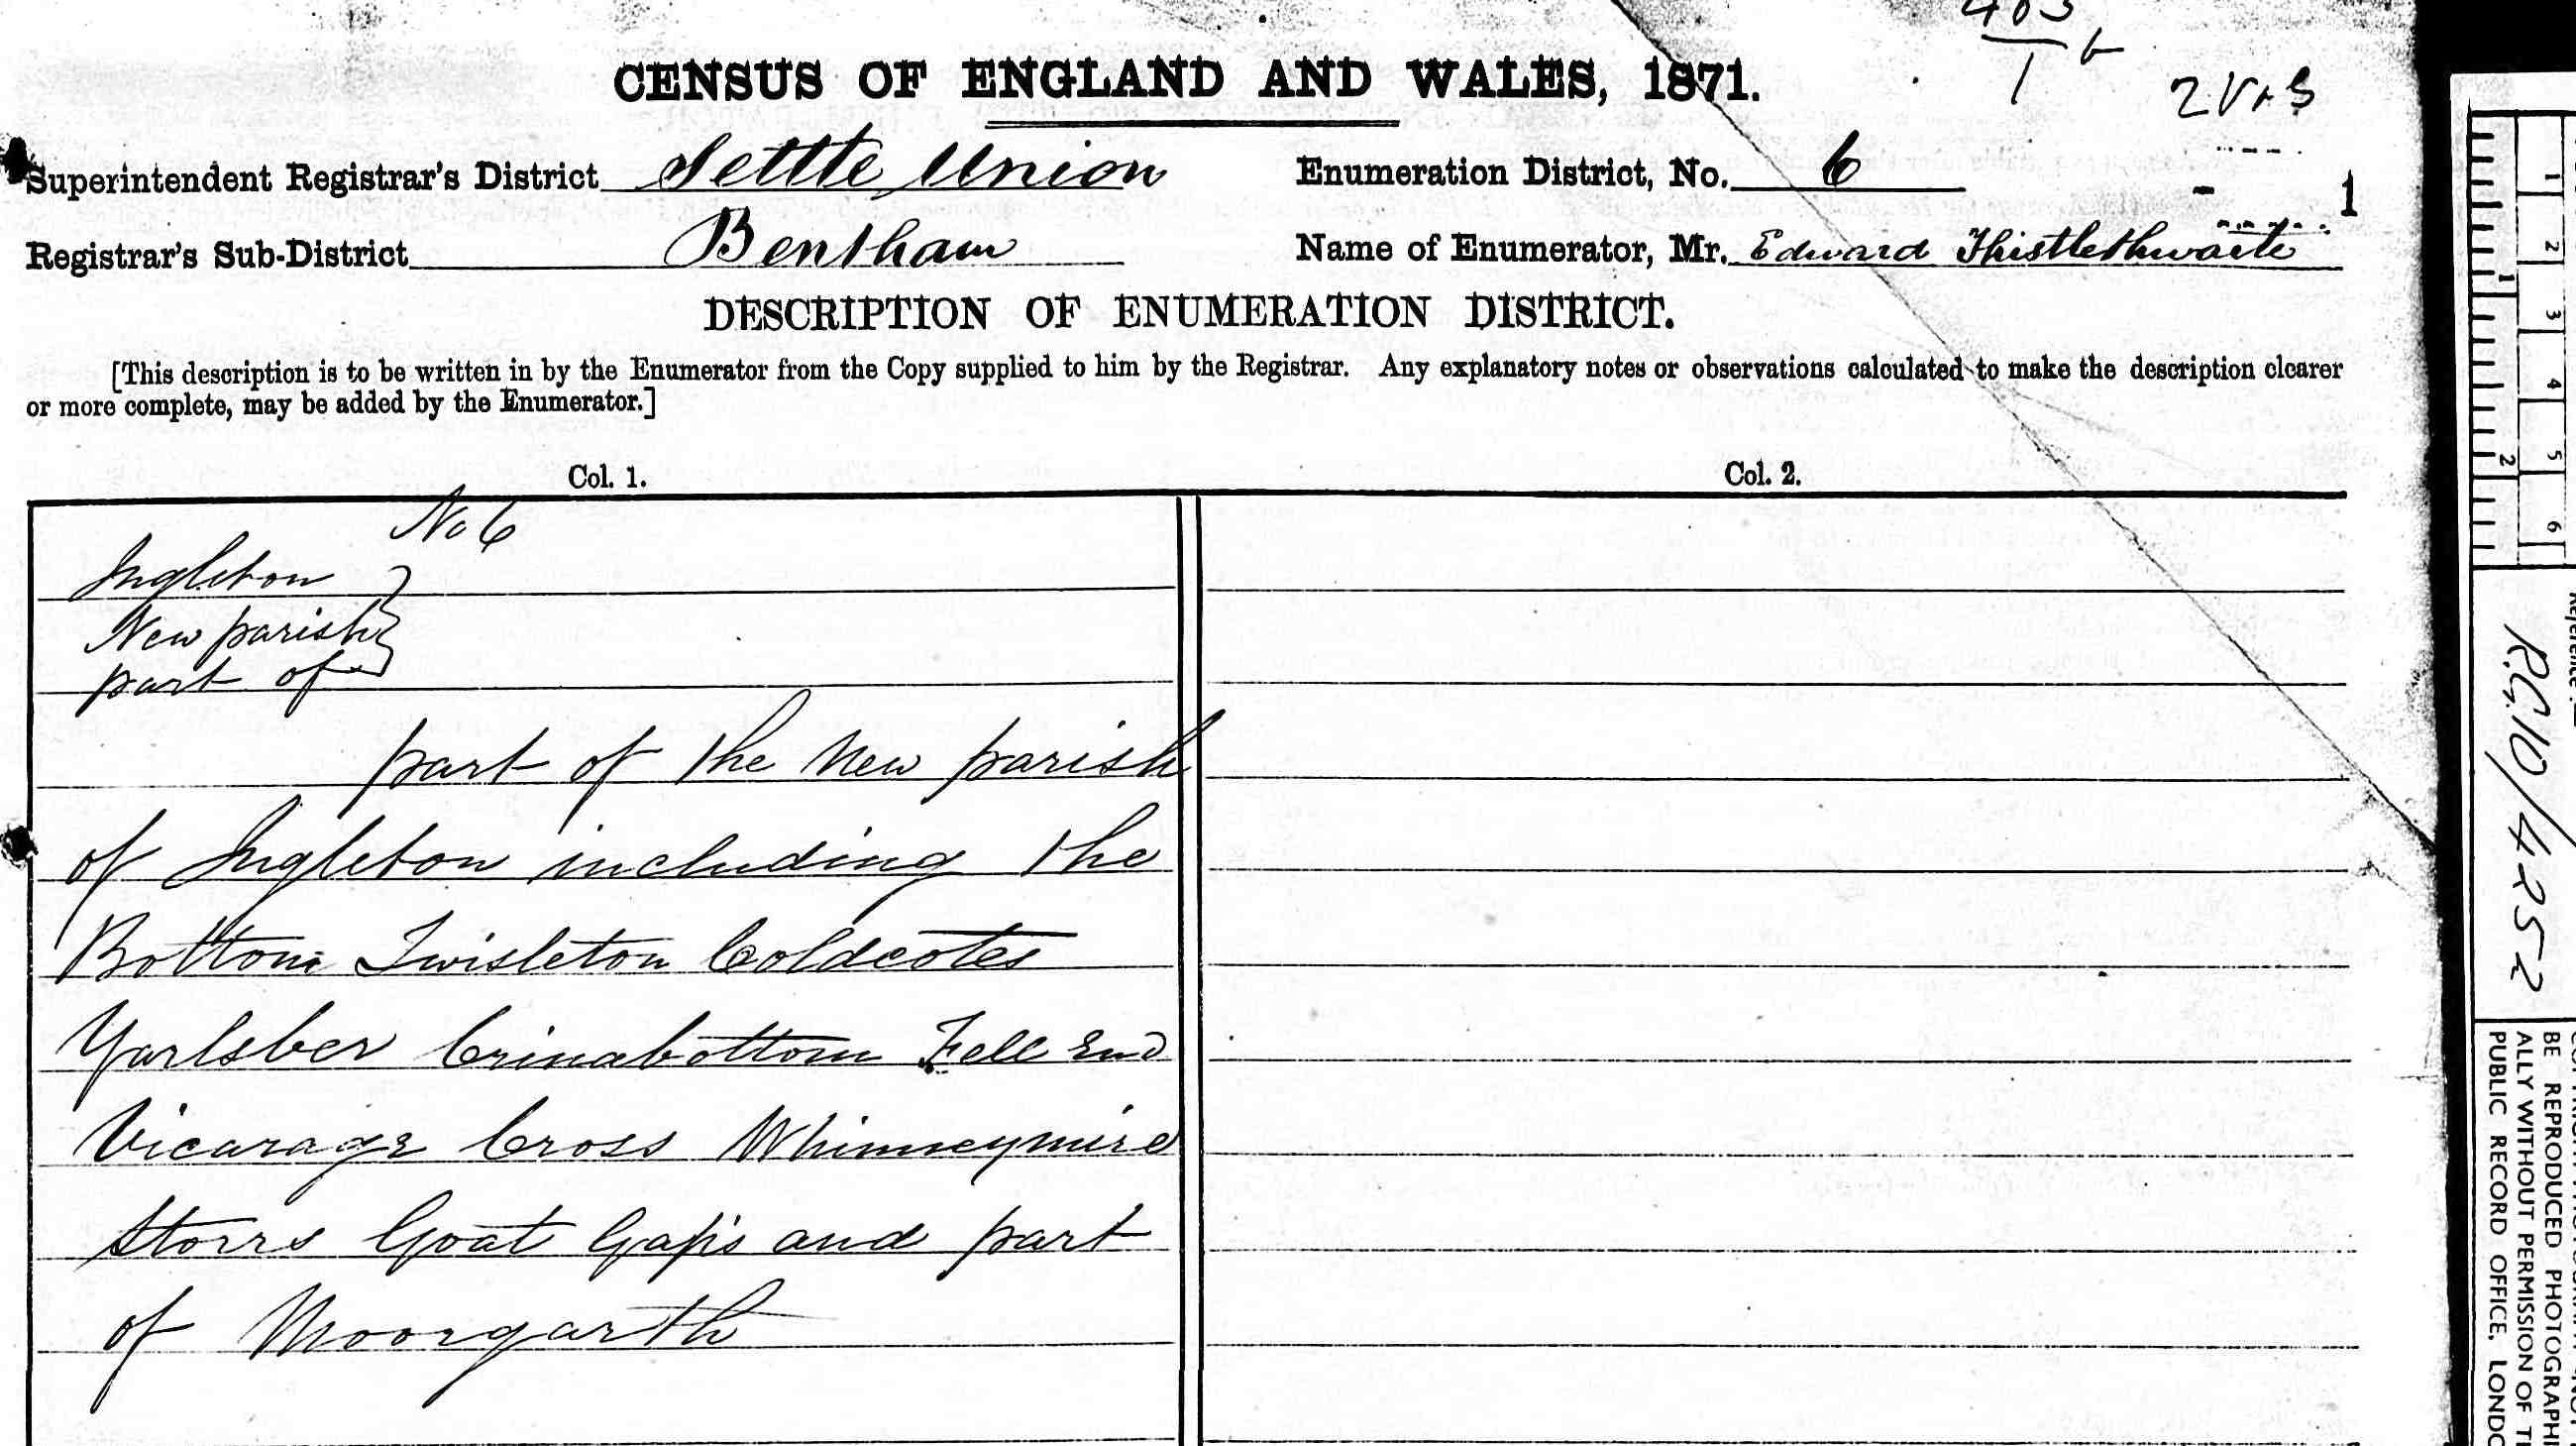 CENSUS OF ENGLAND AND WALES, 1871.
2V+S
Superintendent Registrar's District Settle Union
Enumeration District, No. 6
1
Registrar's Sub-District Bentham
Name of Enumerator, Mr. Edward Thistlethwaite
DESCRIPTION OF ENUMERATION DISTRICT.
[This description is to be written in by the Enumerator from the Copy supplied to him by the Registrar. Any explanatory notes or observations calculated to make the description clearer
or more complete, may be added by the Enumerator.]
Col. 1.
Col. 2.
No 6
Ingleton
New parish
part of
part of the New parish
of Ingleton including the
Bottom Twisleton Coldcotes
Yarlsber Crinabottom Fell End
Vicarage Cross Whinneymire
Storrs Goat Gap's and part
of Moorgarth
1 2 3 4 5 6
1 2
Reference
R.G. 10/4252
BE REPRODUCED
ALLY WITHOUT PERMISSION OF
PUBLIC RECORD OFFICE,